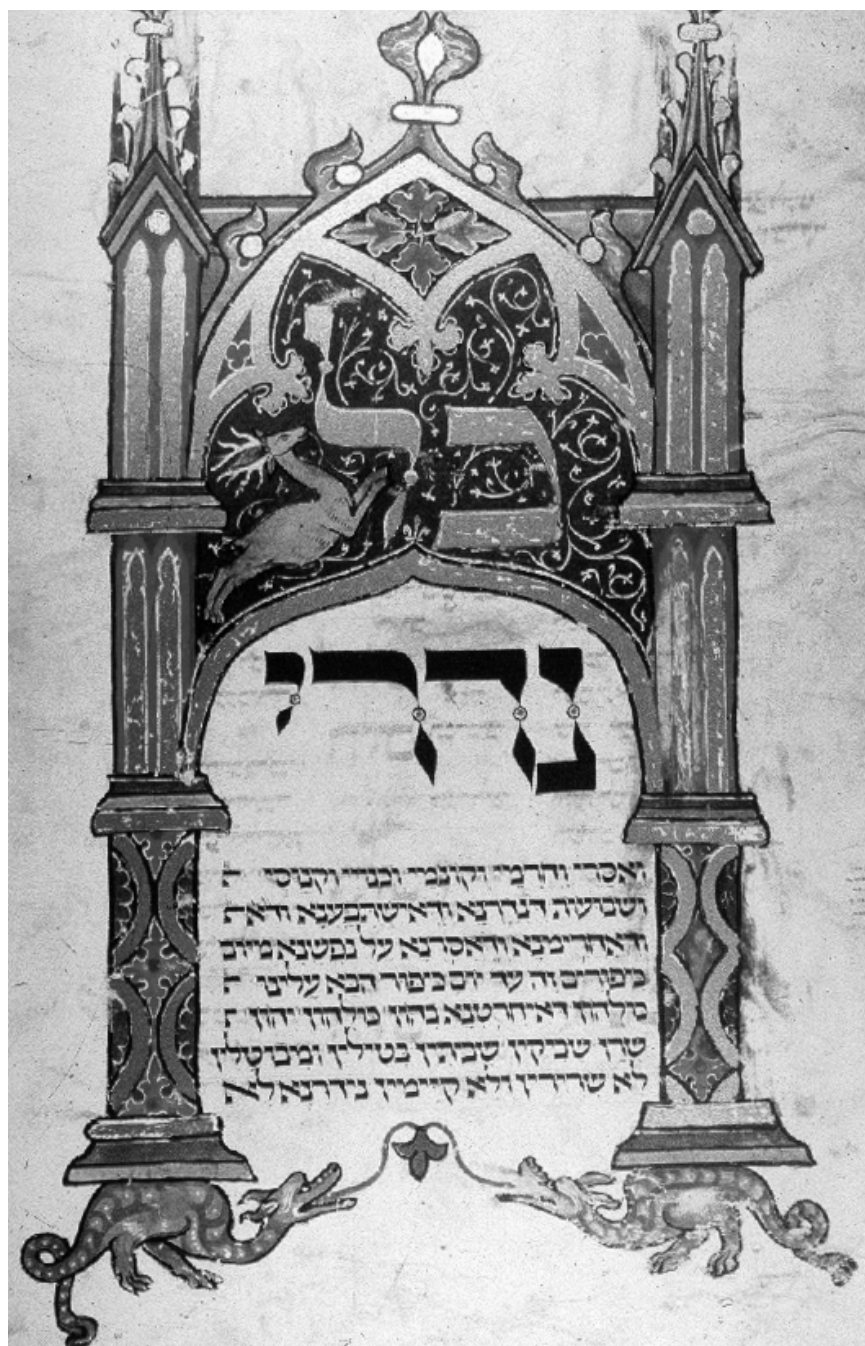 כל
נדרי
ואסרי וחרמי וקונמי וכנויי וקנוסי
ושבועה דנדרנא ודאישתבענא
ודאחרימנא ודאסרנא על נפשנא מיום
כיפורים זה עד יום כיפור הבא עלינו
כולהון דאיחרטנא בהון כולהון יהון
שרן שביקין שביתין בטילין ומבוטלין
לא שרירין ולא קיימין נידרנא לא